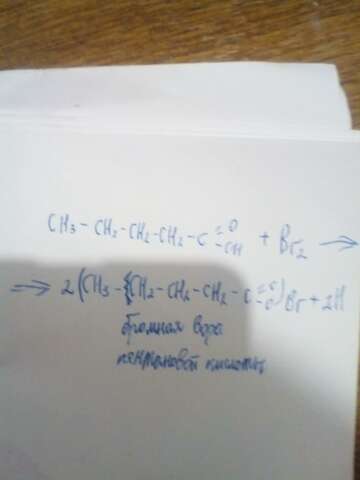 CH₃ - CH₂ - CH₂ - CH₂ - C =O -OH + Br₂ →
⇒ 2(CH₃ - {CH₂ - CH₂ - CH₂ - C =O -O)Br + 2H
бромная вода
пентановой кислоты